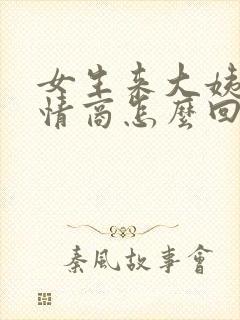 女生来大姨
情商怎麽回
秦風故事會